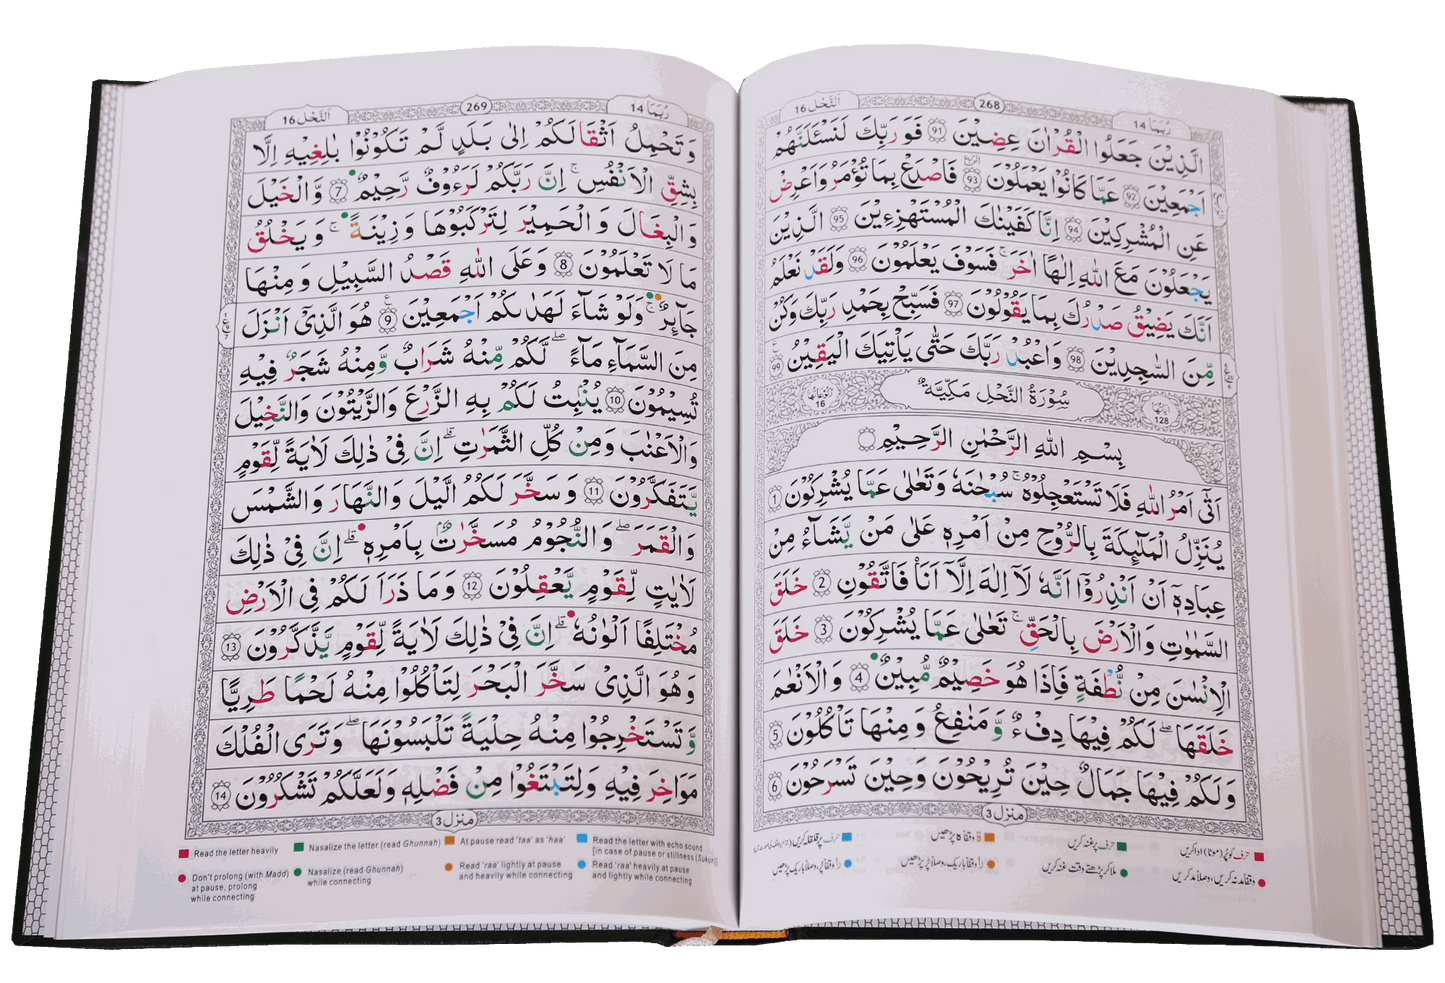 رُبَمَا 14
268
اَلنَّحْل 16
الَّذِيْنَ جَعَلُوا الْقُرْاٰنَ عِضِيْنَ 91 فَوَرَبِّكَ لَنَسْئَلَنَّهُمْ
اَجْمَعِيْنَ 92 عَمَّا كَانُوْا يَعْمَلُوْنَ 93 فَاصْدَعْ بِمَا تُؤْمَرُ وَاَعْرِضْ
عَنِ الْمُشْرِكِيْنَ 94 اِنَّا كَفَيْنٰكَ الْمُسْتَهْزِءِيْنَ 95 الَّذِيْنَ
يَجْعَلُوْنَ مَعَ اللّٰهِ اِلٰهًا اٰخَرَ ۚ فَسَوْفَ يَعْلَمُوْنَ 96 وَلَقَدْ نَعْلَمُ
اَنَّكَ يَضِيْقُ صَدْرُكَ بِمَا يَقُوْلُوْنَ 97 فَسَبِّحْ بِحَمْدِ رَبِّكَ وَكُنْ
مِّنَ السّٰجِدِيْنَ 98 وَاعْبُدْ رَبَّكَ حَتّٰى يَاْتِيَكَ الْيَقِيْنُ 99
اٰيَاتُهَا 128
سُوْرَةُ النَّحْلِ مَكِّيَّةٌ
رُكُوْعَاتُهَا 16
بِسْمِ اللّٰهِ الرَّحْمٰنِ الرَّحِيْمِ
اَتٰٓى اَمْرُ اللّٰهِ فَلَا تَسْتَعْجِلُوْهُ ۚ سُبْحٰنَهٗ وَتَعٰلٰى عَمَّا يُشْرِكُوْنَ 1
يُنَزِّلُ الْمَلٰٓئِكَةَ بِالرُّوْحِ مِنْ اَمْرِهٖ عَلٰى مَنْ يَّشَآءُ مِنْ
عِبَادِهٖٓ اَنْ اَنْذِرُوْٓا اَنَّهٗ لَآ اِلٰهَ اِلَّآ اَنَا فَاتَّقُوْنِ 2 خَلَقَ
السَّمٰوٰتِ وَالْاَرْضَ بِالْحَقِّ ۚ تَعٰلٰى عَمَّا يُشْرِكُوْنَ 3 خَلَقَ
الْاِنْسٰنَ مِنْ نُّطْفَةٍ فَاِذَا هُوَ خَصِيْمٌ مُّبِيْنٌ 4 وَالْاَنْعٰمَ
خَلَقَهَا ۖ لَكُمْ فِيْهَا دِفْءٌ وَّمَنٰفِعُ وَمِنْهَا تَاْكُلُوْنَ 5
وَلَكُمْ فِيْهَا جَمَالٌ حِيْنَ تُرِيْحُوْنَ وَحِيْنَ تَسْرَحُوْنَ 6
منزل 3
رُبَمَا 14
269
اَلنَّحْل 16
وَتَحْمِلُ اَثْقَالَكُمْ اِلٰى بَلَدٍ لَّمْ تَكُوْنُوْا بٰلِغِيْهِ اِلَّا
بِشِقِّ الْاَنْفُسِ ۚ اِنَّ رَبَّكُمْ لَرَءُوْفٌ رَّحِيْمٌ 7 وَّالْخَيْلَ
وَالْبِغَالَ وَالْحَمِيْرَ لِتَرْكَبُوْهَا وَزِيْنَةً ۚ وَيَخْلُقُ
مَا لَا تَعْلَمُوْنَ 8 وَعَلَى اللّٰهِ قَصْدُ السَّبِيْلِ وَمِنْهَا
جَآئِرٌ ۚ وَلَوْ شَآءَ لَهَدٰىكُمْ اَجْمَعِيْنَ 9 هُوَ الَّذِيْٓ اَنْزَلَ
مِنَ السَّمَآءِ مَآءً ۖ لَّكُمْ مِّنْهُ شَرَابٌ وَّمِنْهُ شَجَرٌ فِيْهِ
تُسِيْمُوْنَ 10 يُنْۢبِتُ لَكُمْ بِهِ الزَّرْعَ وَالزَّيْتُوْنَ وَالنَّخِيْلَ
وَالْاَعْنٰبَ وَمِنْ كُلِّ الثَّمَرٰتِ ۗ اِنَّ فِيْ ذٰلِكَ لَاٰيَةً لِّقَوْمٍ
يَّتَفَكَّرُوْنَ 11 وَسَخَّرَ لَكُمُ الَّيْلَ وَالنَّهَارَ وَالشَّمْسَ
وَالْقَمَرَ ۖ وَالنُّجُوْمُ مُسَخَّرٰتٌۢ بِاَمْرِهٖ ۗ اِنَّ فِيْ ذٰلِكَ
لَاٰيٰتٍ لِّقَوْمٍ يَّعْقِلُوْنَ 12 وَمَا ذَرَاَ لَكُمْ فِى الْاَرْضِ
مُخْتَلِفًا اَلْوَانُهٗ ۗ اِنَّ فِيْ ذٰلِكَ لَاٰيَةً لِّقَوْمٍ يَّذَّكَّرُوْنَ 13
وَهُوَ الَّذِيْ سَخَّرَ الْبَحْرَ لِتَاْكُلُوْا مِنْهُ لَحْمًا طَرِيًّا
وَّتَسْتَخْرِجُوْا مِنْهُ حِلْيَةً تَلْبَسُوْنَهَا ۖ وَتَرَى الْفُلْكَ
مَوَاخِرَ فِيْهِ وَلِتَبْتَغُوْا مِنْ فَضْلِهٖ وَلَعَلَّكُمْ تَشْكُرُوْنَ 14
منزل 3
Read the letter heavily
Nasalize the letter (read Ghunnah)
At pause read 'taa' as 'haa'
Read the letter with echo sound
[in case of pause or stillness (Sukun)]
Don't prolong (with Madd)
at pause, prolong
while connecting
Nasalize (read Ghunnah)
while connecting
Read 'raa' lightly at pause
and heavily while connecting
Read 'raa' heavily at pause
and lightly while connecting
حرف کو پُر (موٹا) ادا کریں
حرف پر غنہ کریں
ۃ وقفاً ہ پڑھیں
حرف پر قلقلہ کریں
وقفاً مد نہ کریں، وصلاً مد کریں
ملا کر پڑھتے وقت غنہ کریں
را وقفاً باریک، وصلاً پُر پڑھیں
را وقفاً پُر، وصلاً باریک پڑھیں